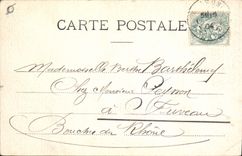 CARTE POSTALE
Mademoiselle Barthélemy
Chez Monsieur
à Fuveau
Bouches du Rhône